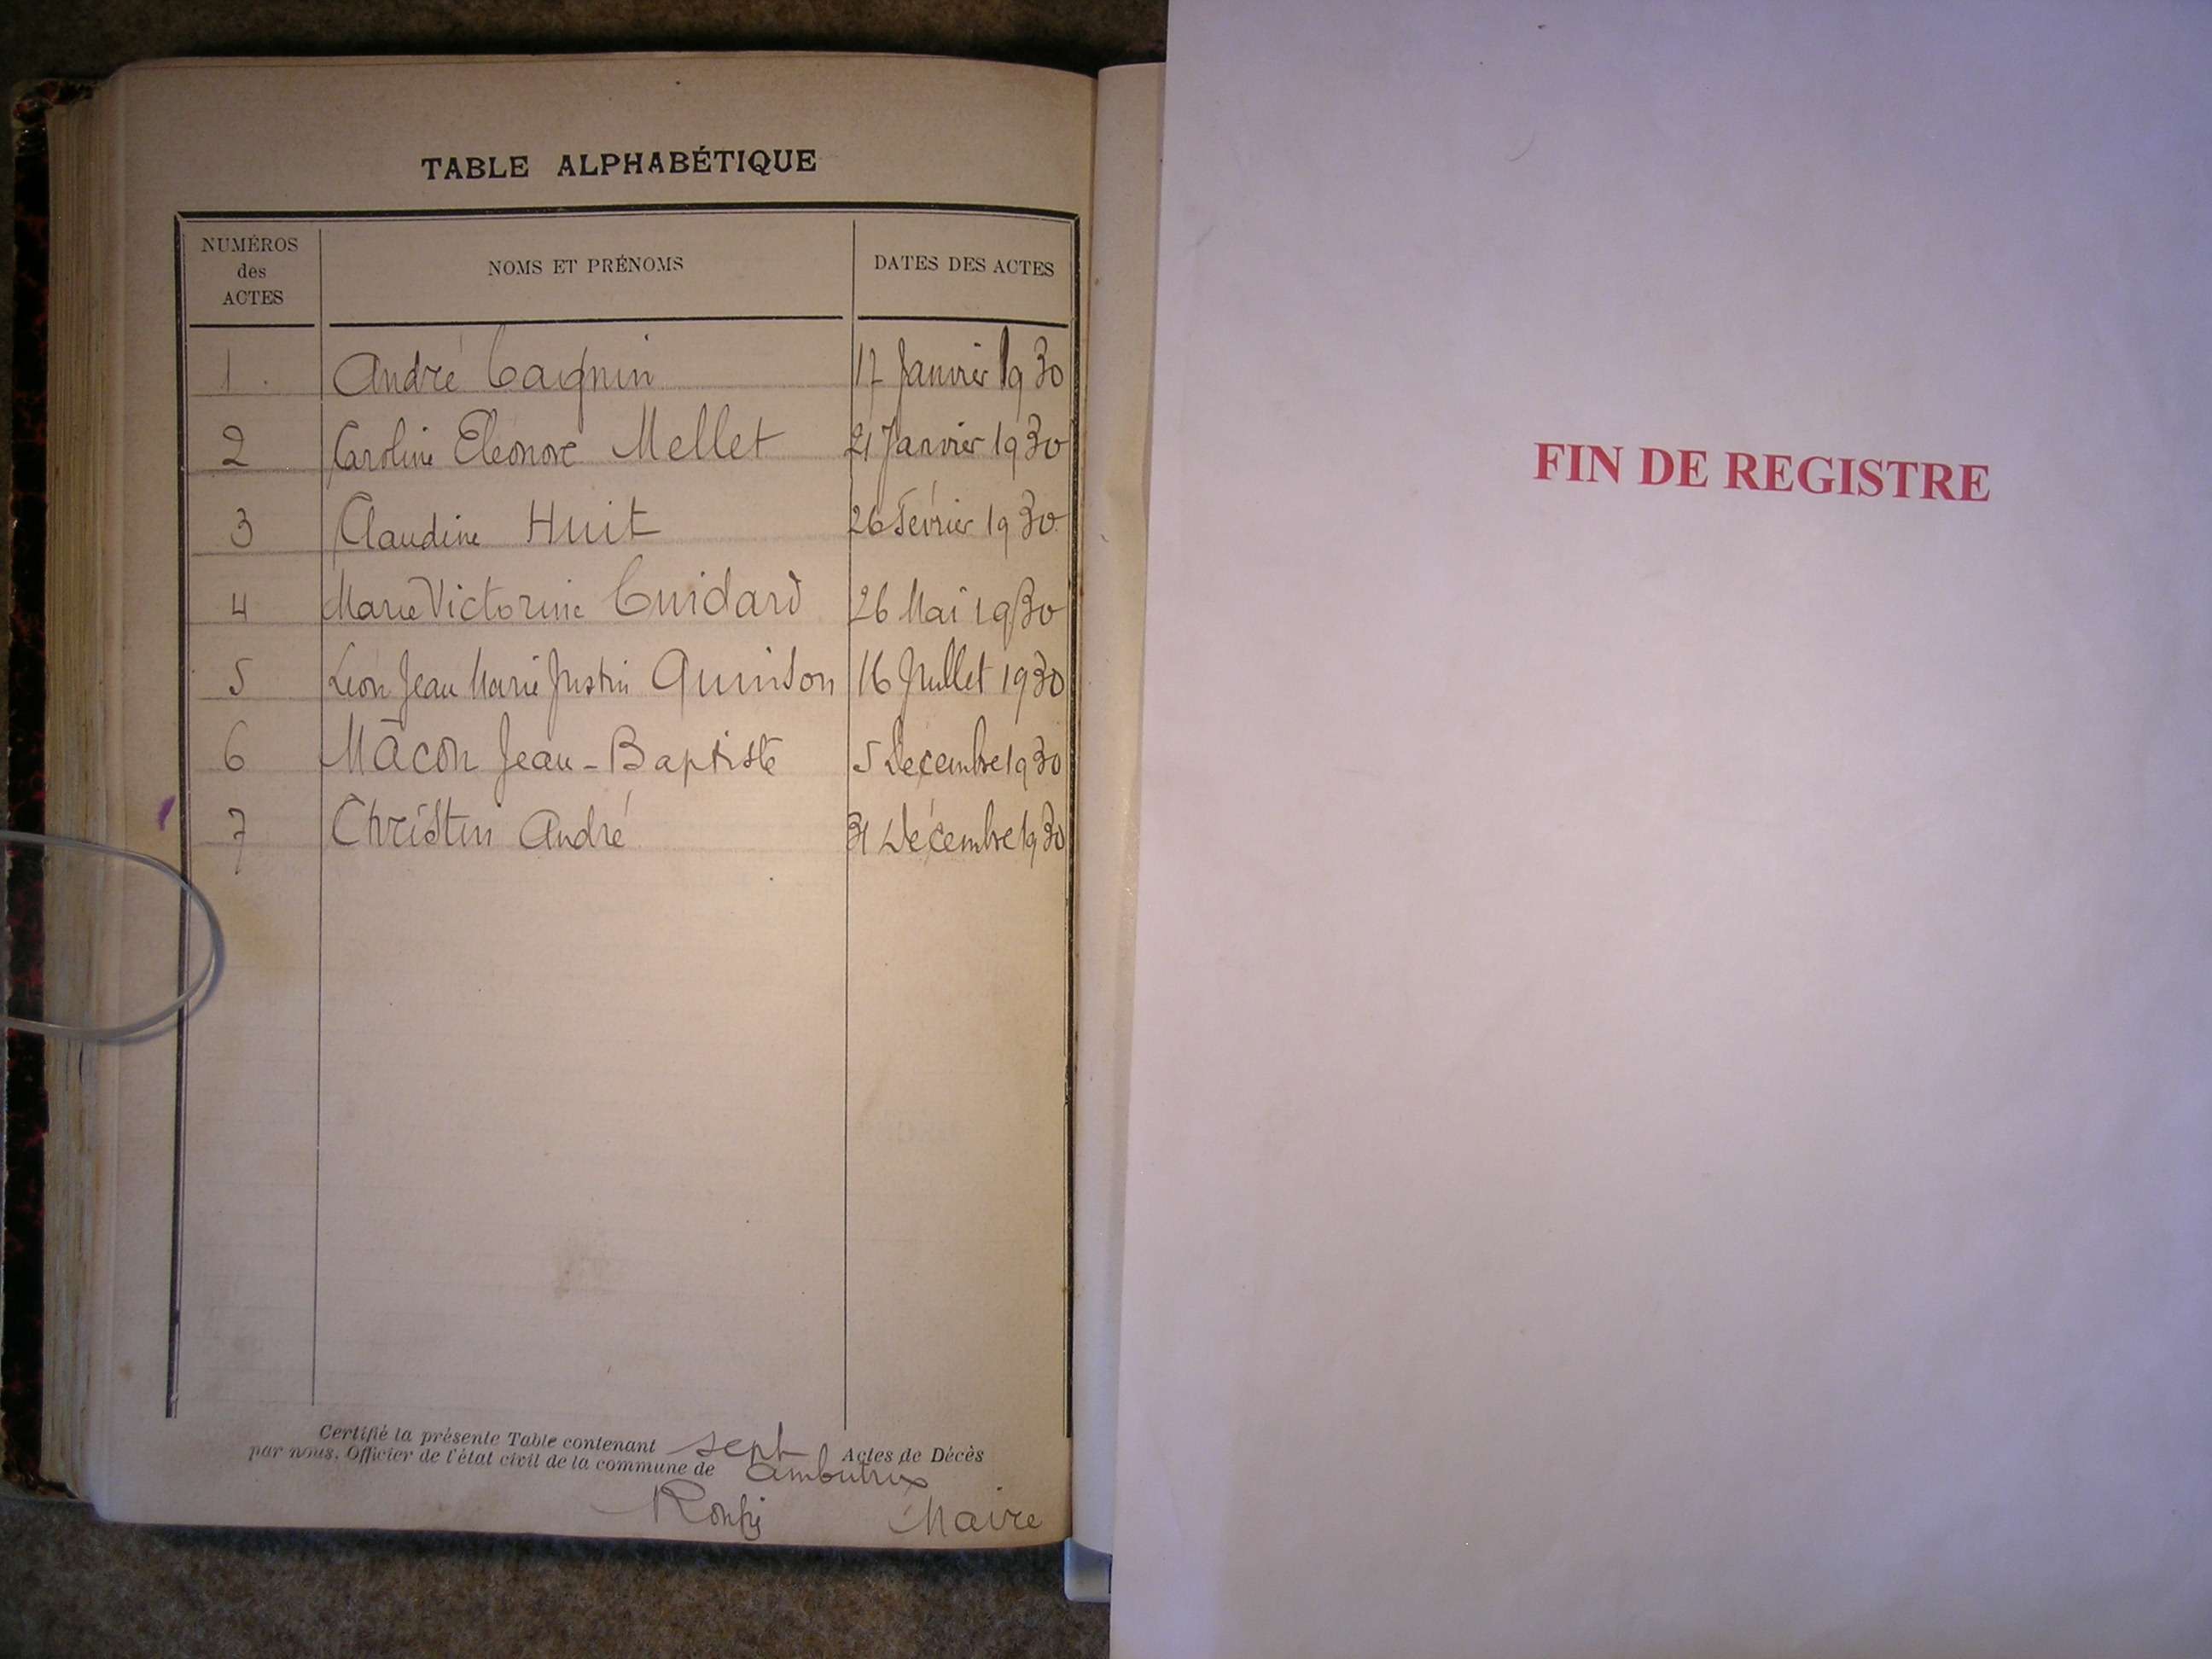 TABLE ALPHABÉTIQUE
NUMÉROS des ACTES NOMS ET PRÉNOMS DATES DES ACTES
1. André Cagnin 17 Janvier 1930
2 Caroline Eléonore Mellet 21 Janvier 1930
3 Claudine Huit 26 Février 1930
4 Marie Victorine Cuidard 26 Mai 1930
5 Léon Jean Marie Justin Quinson 16 Juillet 1930
6 Mâcon Jean-Baptiste 5 Décembre 1930
7 Christin André 31 Décembre 1930
Certifié la présente Table contenant sept Actes de Décès
par nous, Officier de l'état civil de la commune de Ambutrix
Maire
FIN DE REGISTRE